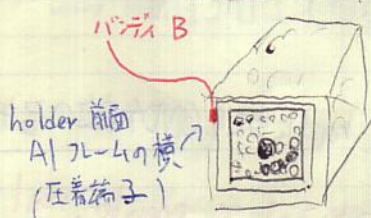 バンディ B
holder 前面
Al フレームの横
(圧着端子)